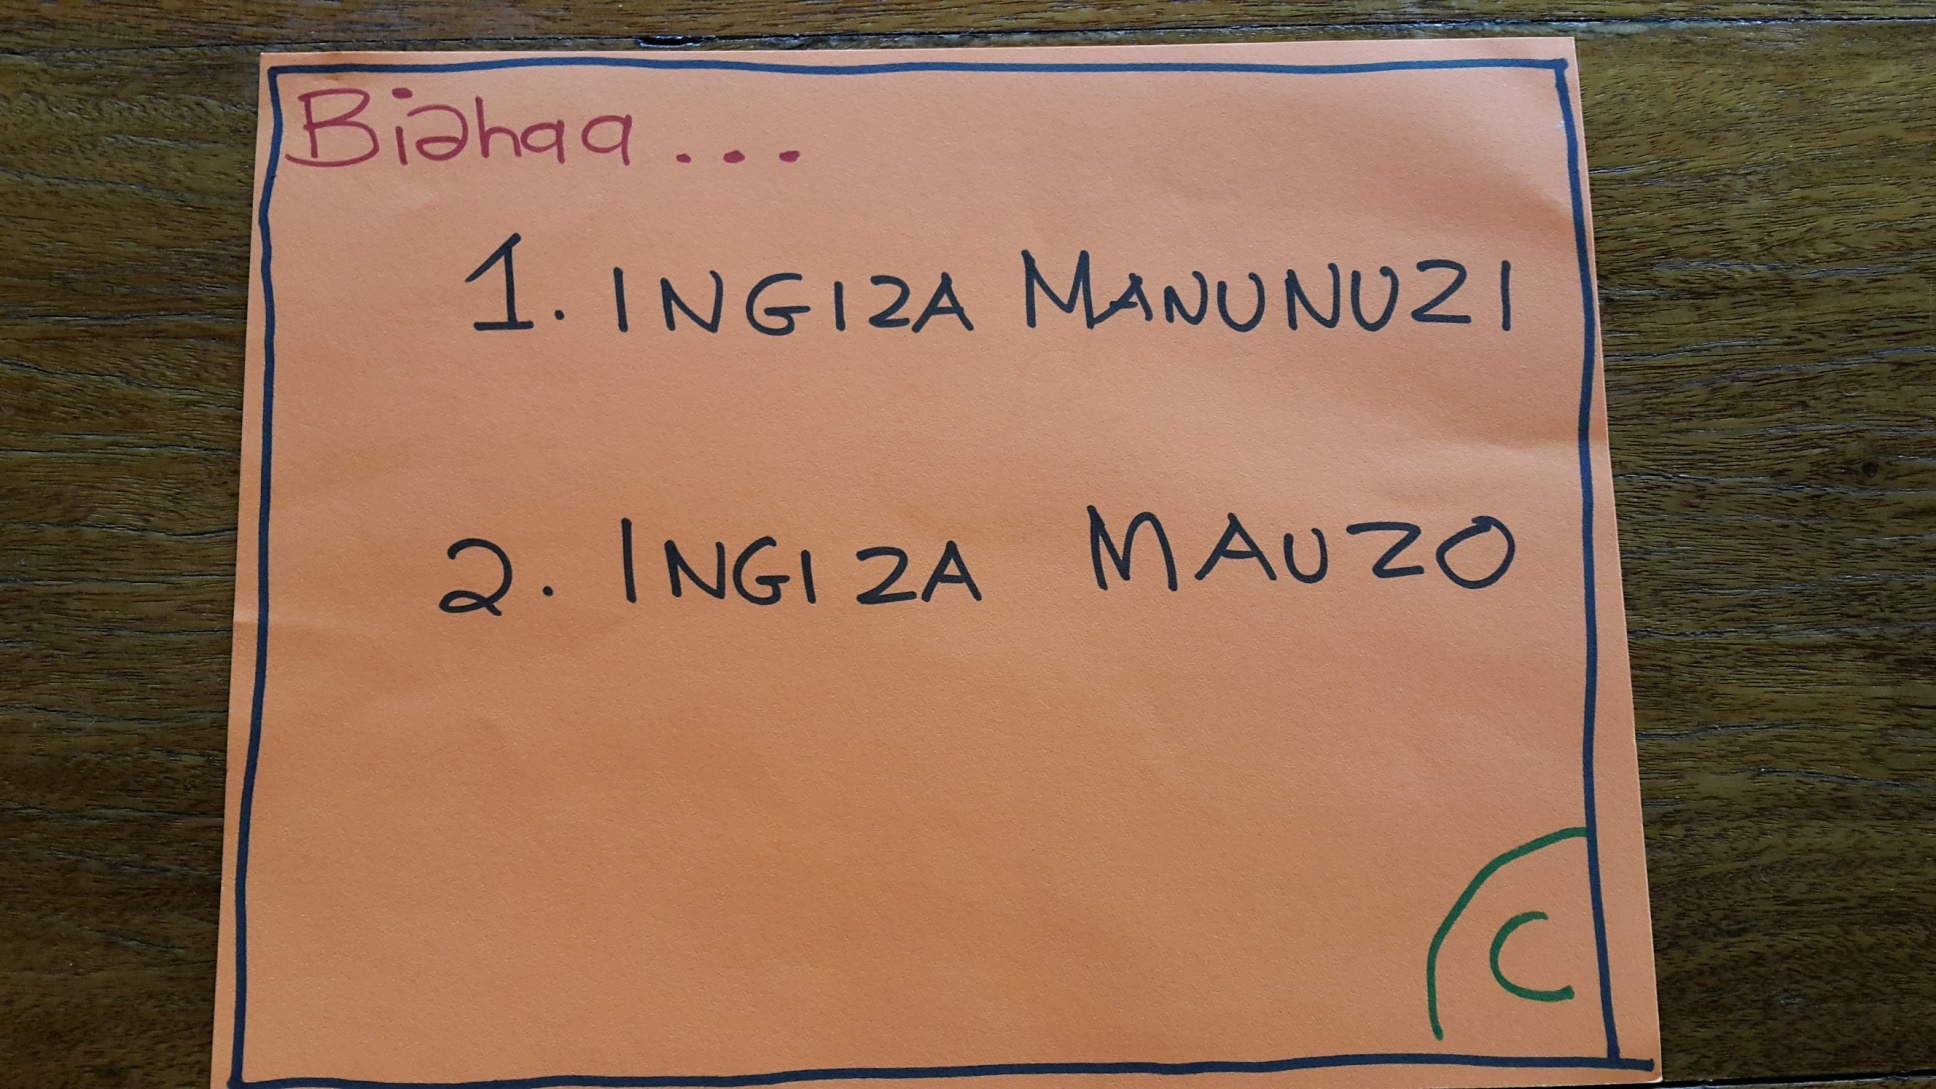 Biahaa...
1. INGIZA MANUNUZI
2. INGIZA MAUZO
C